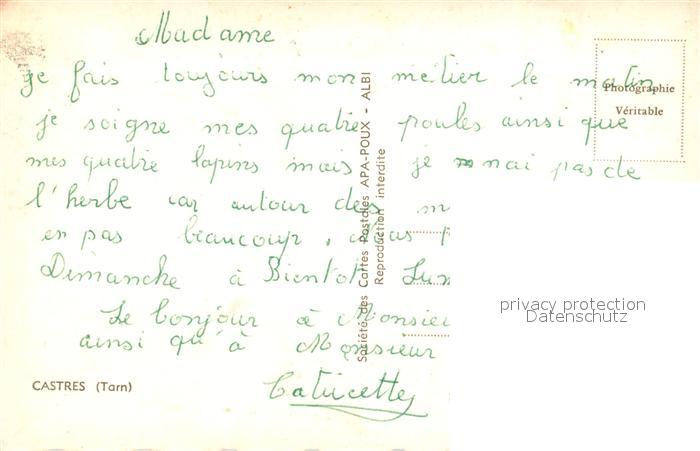 Madame
je fais toujours mon métier le matin
Photographie
Véritable
je soigne mes quatre poules ainsi que
mes quatre lapins mais je nai pas de
l'herbe car autour des
en pas beaucoup,
Dimanche à Bientot
Le bonjour à Monsieu
ainsi qu'à Monsieur
Société des Cartes Postales APA-POUX - ALBI
Reproduction interdite
privacy protection
Datenschutz
CASTRES (Tarn)